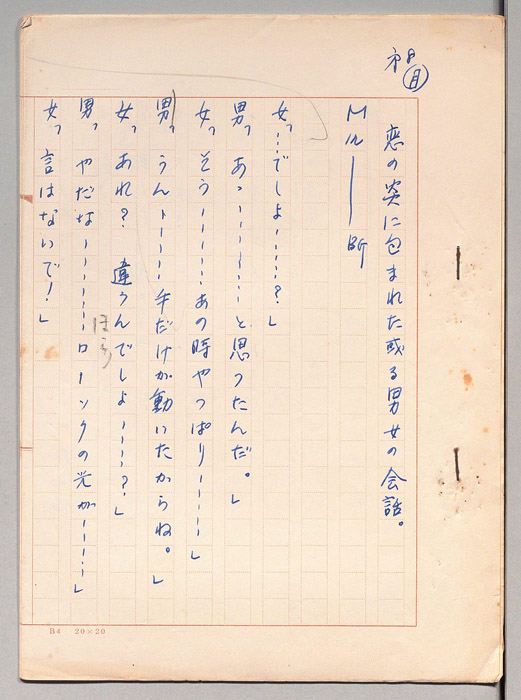 恋の炎に包まれた或る男女の会話。
M
BG
女「……でしょ……?」
男「あっ…………と思ったんだ。」
女「そう…………あの時やっぱり………」
男「うん………手だけが動いたからね。」
女「あれ? 違うんでしょ………?」
男「やだな…………ローソクの光が………」
ほら
女「言はないで!」
B4 20×20